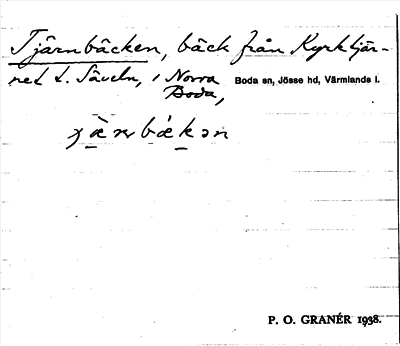 Tjärnbäcken, bäck från Kyrktjär-
net t. Säveln, i Norra
Boda,
Boda sn, Jösse hd, Värmlands l.
P. O. GRANÉR 1938.